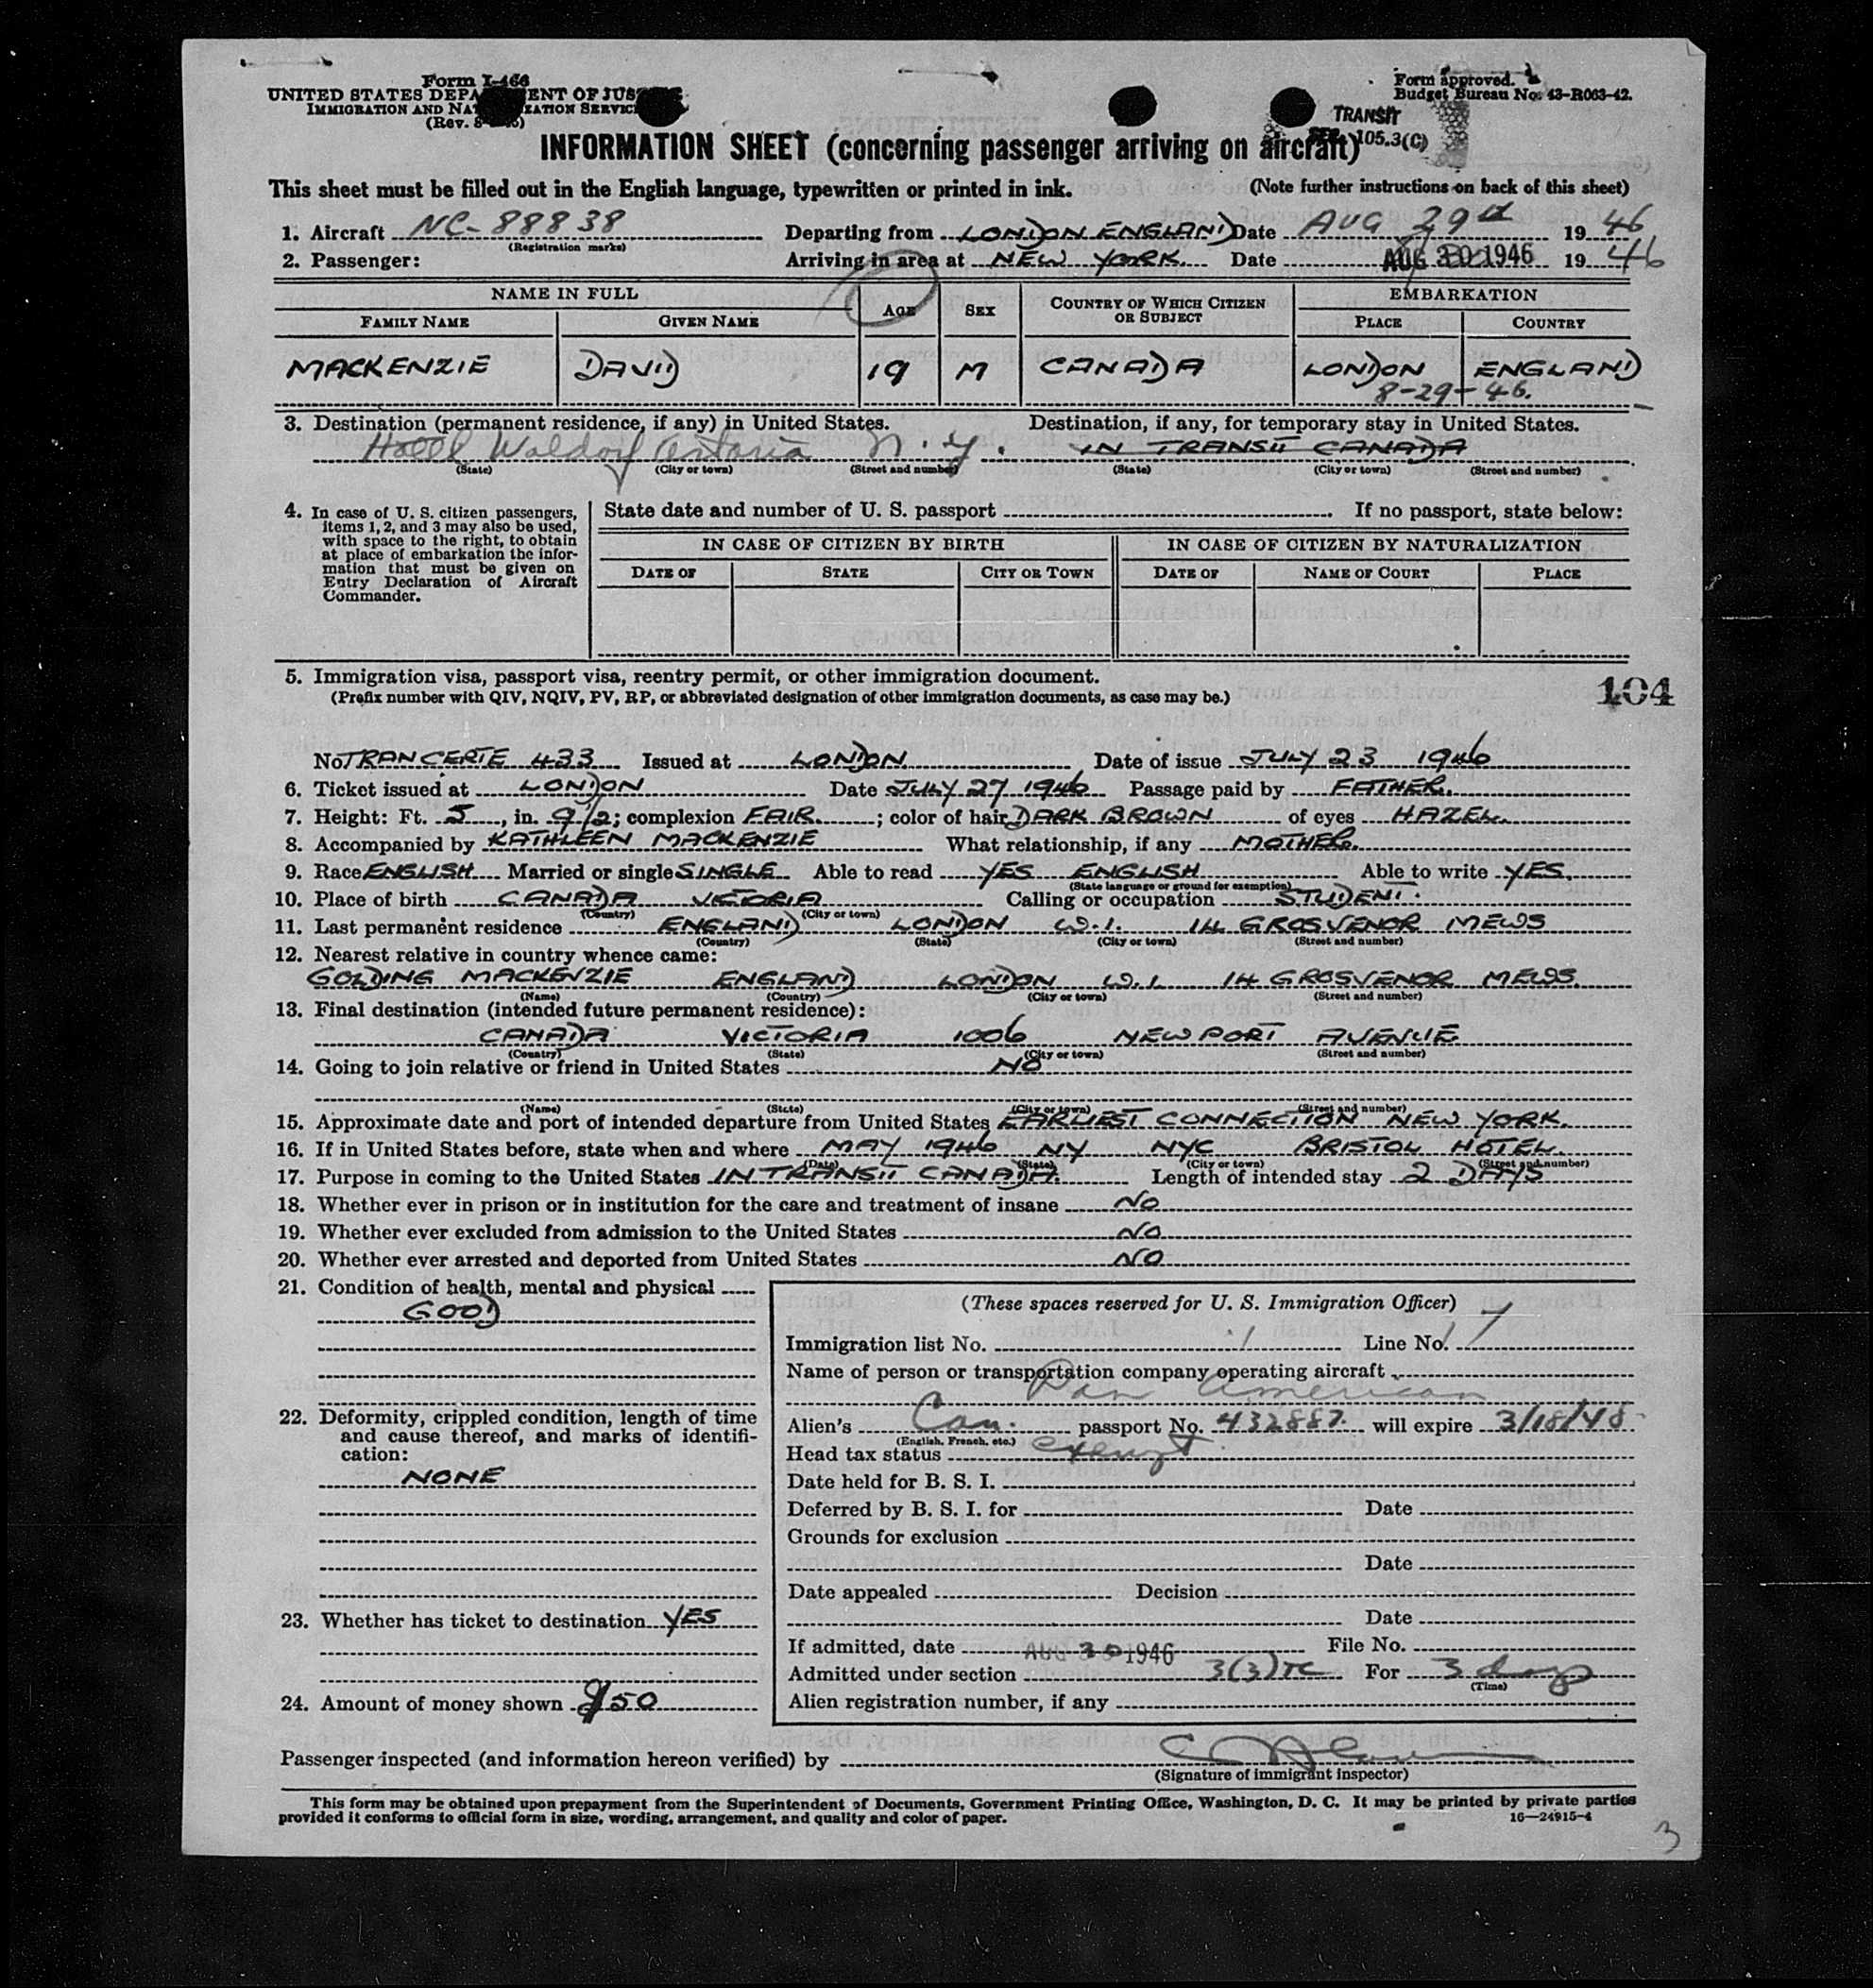 Form I-466
UNITED STATES DEPA ENT OF JUS
IMMIGRATION AND NA ZATION SERVIC
(Rev. 8
Form approved.
Budget Bureau No. 43-R063-42.
TRANSIT
105.3(C)
INFORMATION SHEET (concerning passenger arriving on aircraft)
This sheet must be filled out in the English language, typewritten or printed in ink. (Note further instructions on back of this sheet)
1. Aircraft NC-88838 Departing from LONDON ENGLAND Date AUG 29 1946
(Registration marks)
2. Passenger: Arriving in area at NEW YORK Date AUG 30 1946 1946
NAME IN FULL AGE SEX COUNTRY OF WHICH CITIZEN OR SUBJECT EMBARKATION
FAMILY NAME GIVEN NAME PLACE COUNTRY
MACKENZIE DAVID 19 M CANADA LONDON ENGLAND
8-29-46.
3. Destination (permanent residence, if any) in United States. Destination, if any, for temporary stay in United States.
Hotel Waldorf Astoria N.Y. IN TRANSIT CANADA
(State) (City or town) (Street and number) (State) (City or town) (Street and number)
4. In case of U. S. citizen passengers, items 1, 2, and 3 may also be used, with space to the right, to obtain at place of embarkation the information that must be given on Entry Declaration of Aircraft Commander.
State date and number of U. S. passport If no passport, state below:
IN CASE OF CITIZEN BY BIRTH IN CASE OF CITIZEN BY NATURALIZATION
DATE OF STATE CITY OR TOWN DATE OF NAME OF COURT PLACE
5. Immigration visa, passport visa, reentry permit, or other immigration document.
(Prefix number with QIV, NQIV, PV, RP, or abbreviated designation of other immigration documents, as case may be.)
104
No TRAN CERTE 433 Issued at LONDON Date of issue JULY 23 1946
6. Ticket issued at LONDON Date JULY 27 1946 Passage paid by FATHER.
7. Height: Ft. 5, in. 9 1/2; complexion FAIR.; color of hair DARK BROWN of eyes HAZEL.
8. Accompanied by KATHLEEN MACKENZIE What relationship, if any MOTHER.
9. Race ENGLISH Married or single SINGLE Able to read YES ENGLISH Able to write YES.
(State language or ground for exemption)
10. Place of birth CANADA VICTORIA Calling or occupation STUDENT.
(Country) (City or town)
11. Last permanent residence ENGLAND LONDON W.1. 14 GROSVENOR MEWS
(Country) (State) (City or town) (Street and number)
12. Nearest relative in country whence came:
GOLDING MACKENZIE ENGLAND LONDON W.1 14 GROSVENOR MEWS.
(Name) (Country) (City or town) (Street and number)
13. Final destination (intended future permanent residence):
CANADA VICTORIA 1006 NEWPORT AVENUE
(Country) (State) (City or town) (Street and number)
14. Going to join relative or friend in United States NO
(Name) (State) (City or town) (Street and number)
15. Approximate date and port of intended departure from United States EARLIEST CONNECTION NEW YORK.
16. If in United States before, state when and where MAY 1946 NY NYC BRISTOL HOTEL.
(Date) (State) (City or town) (Street and number)
17. Purpose in coming to the United States IN TRANSIT CANADA. Length of intended stay 2 DAYS
18. Whether ever in prison or in institution for the care and treatment of insane NO
19. Whether ever excluded from admission to the United States NO
20. Whether ever arrested and deported from United States NO
21. Condition of health, mental and physical
GOOD
22. Deformity, crippled condition, length of time
and cause thereof, and marks of identifi-
cation:
NONE
23. Whether has ticket to destination YES
24. Amount of money shown $50
(These spaces reserved for U. S. Immigration Officer)
Immigration list No. 1 Line No. 7
Name of person or transportation company operating aircraft
Pan American
Alien's Can. passport No. 432887 will expire 3/18/48
(English, French, etc.)
Head tax status exempt
Date held for B. S. I.
Deferred by B. S. I. for Date
Grounds for exclusion
Date
Date appealed Decision
Date
If admitted, date AUG 30 1946 File No.
Admitted under section 3(3)TC For 3 days
(Time)
Alien registration number, if any
Passenger inspected (and information hereon verified) by
(Signature of immigrant inspector)
This form may be obtained upon prepayment from the Superintendent of Documents, Government Printing Office, Washington, D. C. It may be printed by private parties
provided it conforms to official form in size, wording, arrangement, and quality and color of paper. 16—24915-4
3